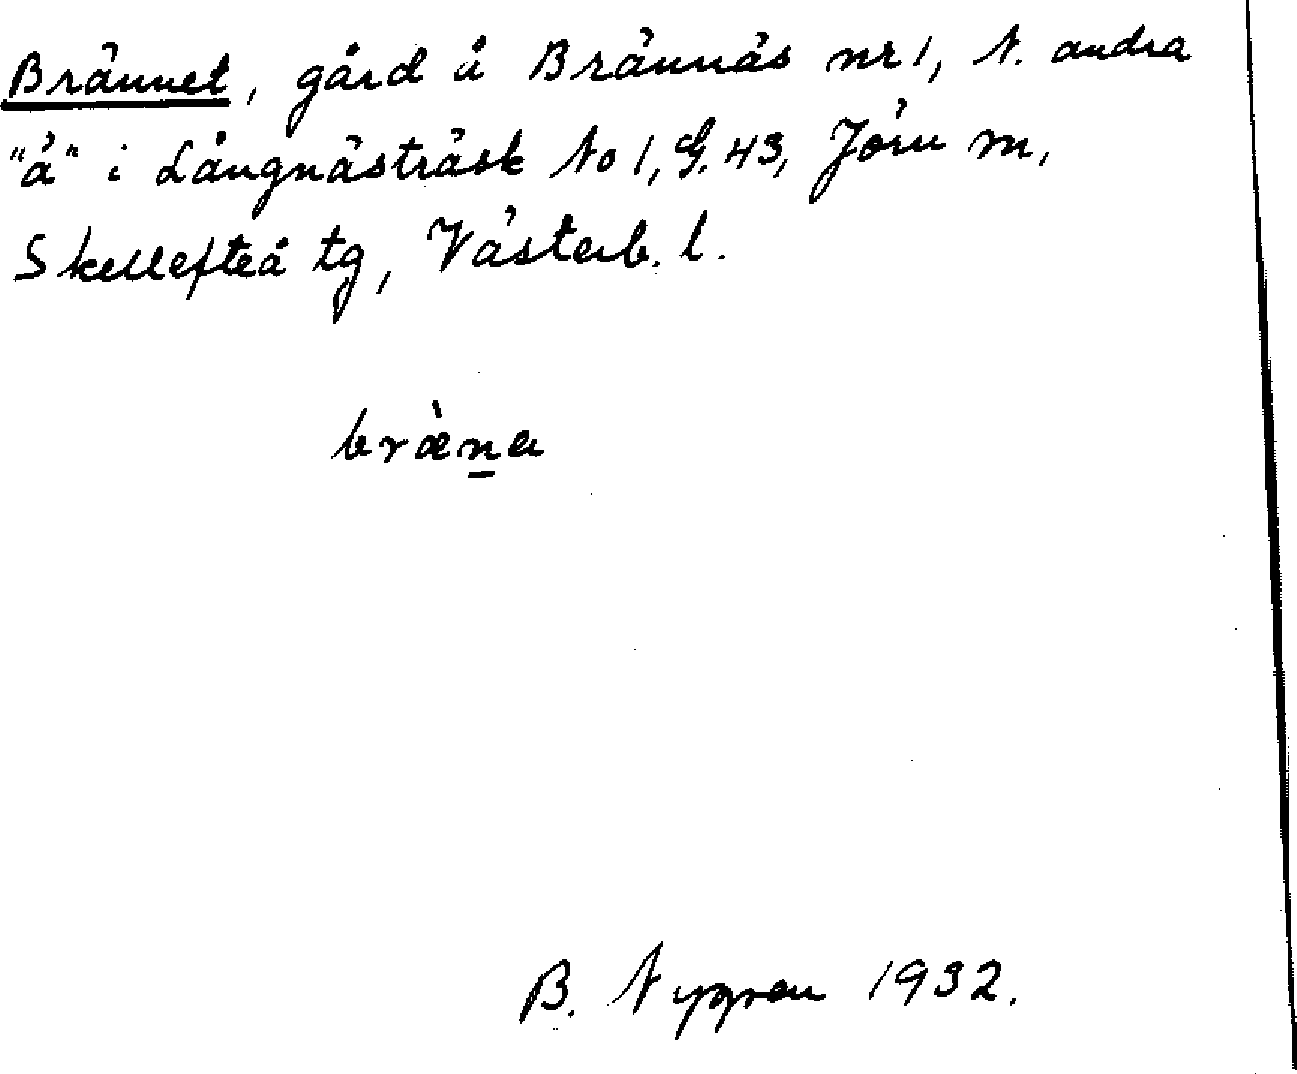 Brännet, gård å Brännäs nr 1, N. andra
"ä" i Långnästräsk No 1, G. 43, Jörn m,
Skellefteå tg, Västerb. l.
bræ̀n̲a
B. Nygren 1932.